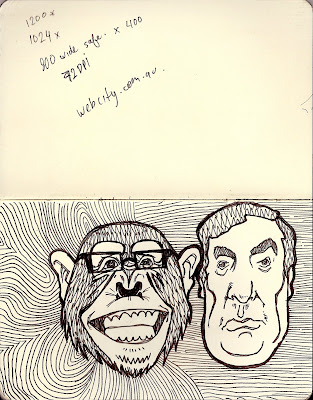 1200 x
1024 x
800 wide safe. x 400
72DPI
webcity.com.au.